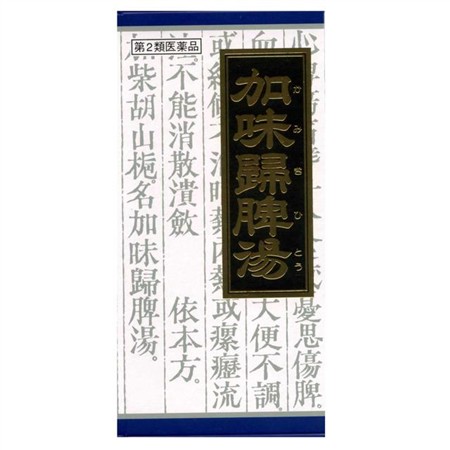 第2類医薬品
加味歸脾湯
かみきひとう
憂思傷脾。
大便不調。
或瘰癧流
不能消散潰斂
依本方。
加柴胡山梔名加味歸脾湯。